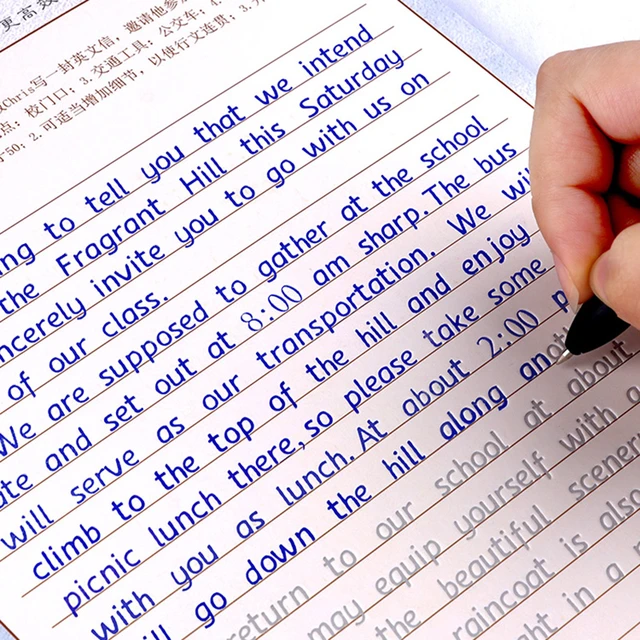 更高效
Chris写一封英文信，邀请他参
点：校门口；3.交通工具：公交车；4.
50；2.可适当增加细节，以使行文连贯；3.
ng to tell you that we intend
the Fragrant Hill this Saturday
ncerely invite you to go with us on
of our class.
We are supposed to gather at the school
te and set out at 8:00 am sharp. The bus
will serve as our transportation. We wil
climb to the top of the hill and enjoy
picnic lunch there, so please take some
with you as lunch. At about 2:00 p
ill go down the hill along anoth
return to our school at about
may equip yourself with a
the beautiful scener
raincoat is also
ht in a